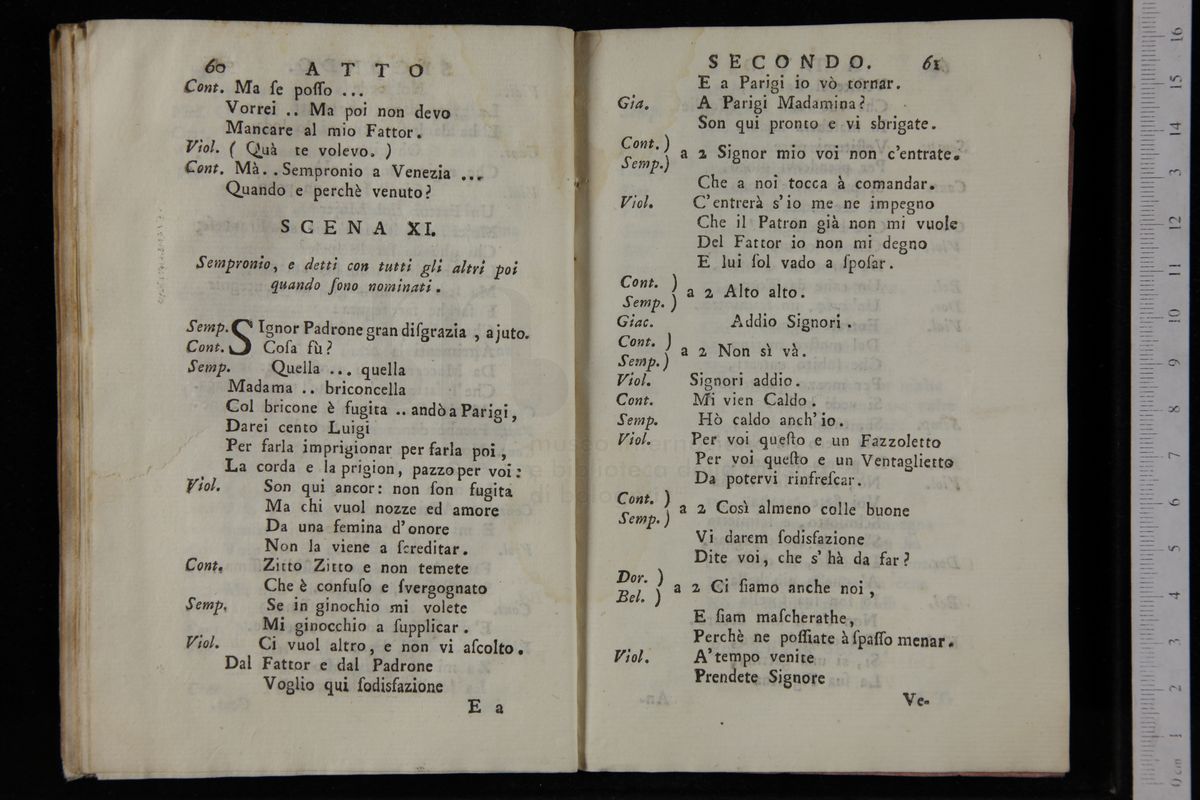 60 ATTO
Cont. Ma ſe poſſo ...
Vorrei .. Ma poi non devo
Mancare al mio Fattor.
Viol. ( Quà te volevo. )
Cont. Mà.. Sempronio a Venezia ...
Quando e perchè venuto?
SCENA XI.
Sempronio, e detti con tutti gli altri poi
quando ſono nominati.
Semp. SIgnor Padrone gran diſgrazia, ajuto.
Cont. Coſa fù?
Semp. Quella ... quella
Madama .. briconcella
Col bricone è fugita .. andò a Parigi,
Darei cento Luigi
Per farla imprigionar per farla poi,
La corda e la prigion, pazzo per voi:
Viol. Son qui ancor: non ſon fugita
Ma chi vuol nozze ed amore
Da una femina d'onore
Non la viene a ſcreditar.
Cont. Zitto Zitto e non temete
Che è confuſo e ſvergognato
Semp. Se in ginochio mi volete
Mi ginocchio a ſupplicar.
Viol. Ci vuol altro, e non vi aſcolto.
Dal Fattor e dal Padrone
Voglio qui ſodisfazione
E a
SECONDO. 61
E a Parigi io vò tornar.
Gia. A Parigi Madamina?
Son qui pronto e vi sbrigate.
Cont. )
Semp.) a 2 Signor mio voi non c'entrate.
Che a noi tocca à comandar.
Viol. C'entrerà s'io me ne impegno
Che il Patron già non mi vuole
Del Fattor io non mi degno
E lui ſol vado a ſpoſar.
Cont. )
Semp. ) a 2 Alto alto.
Giac. Addio Signori.
Cont. )
Semp.) a 2 Non sì và.
Viol. Signori addio.
Cont. Mi vien Caldo.
Semp. Hò caldo anch'io.
Viol. Per voi queſto e un Fazzoletto
Per voi queſto e un Ventaglietto
Da potervi rinfreſcar.
Cont. )
Semp. ) a 2 Così almeno colle buone
Vi darem ſodisfazione
Dite voi, che s'hà da far?
Dor. )
Bel. ) a 2 Ci ſiamo anche noi,
E ſiam maſcherathe,
Perchè ne poſſiate à ſpaſſo menar.
Viol. A'tempo venite
Prendete Signore
Ve-